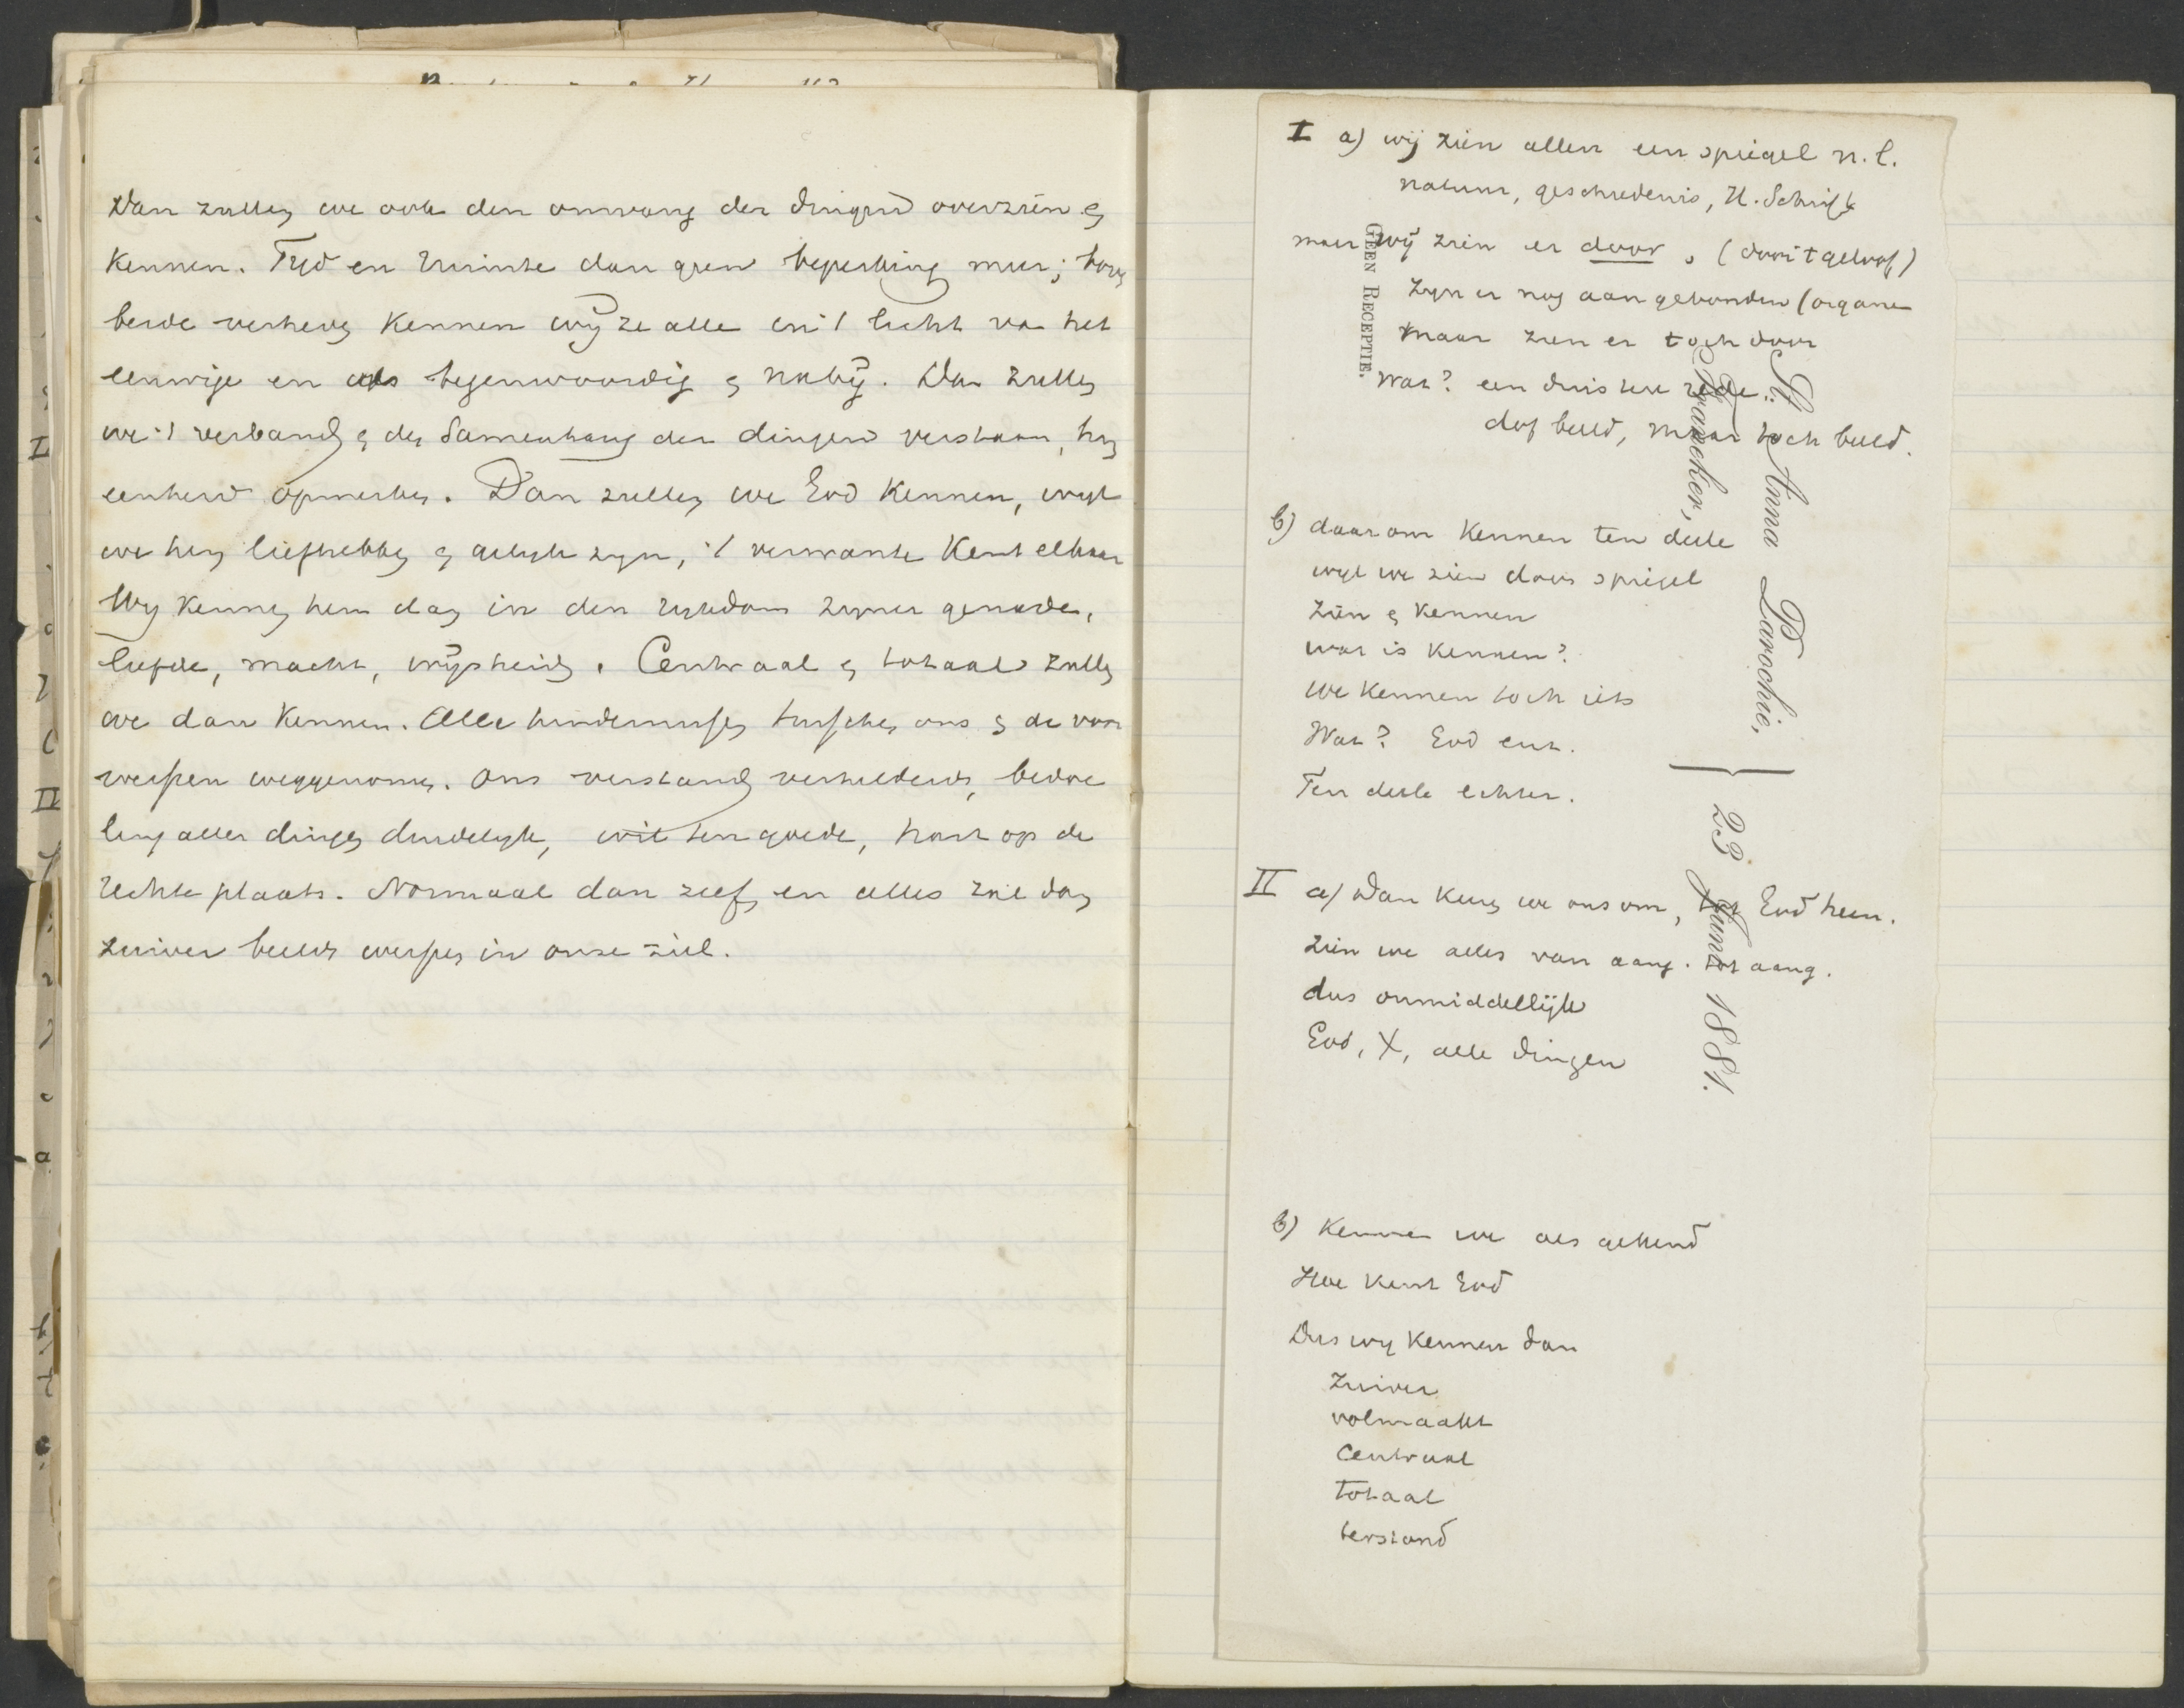 Dan zullen we ook den omvang der dingen overzien &
kennen. Tyd en ruimte dan geen beperking meer; boven
beide verheven kennen wij ze alle in 't licht van het
eeuwige en als tegenwoordig & nabij. Dan zullen
we 't verband & den samenhang der dingen verstaan, hun
eenheid opmerken. Dan zullen we God kennen, wyl
we hem liefhebben & gelyk zyn, 't verwante kent elkaar
Wy kennen hem dan in den rykdom zyner genade,
liefde, macht, wijsheid. Centraal & totaal zullen
we dan kennen. Alle hindernissen tusschen ons & de voor
werpen weggenomen. Ons verstand verhelderd, bedoe
ling aller dingen duidelyk, wil ten goede, hart op de
rechte plaats. Normaal dan zelf, en alles zal dan
zuiver beeld werpen in onze ziel.
I a) wij zien allen een spiegel n.l.
natuur, geschiedenis, H. Schrift
maar wij zien er door, (door 't geloof)
zyn er nog aan gebonden (organen
maar zien er toch door
wat? een duistere rede.
dof beeld, maar toch beeld.
b) daarom kennen ten deele
wyl we zien door spiegel
zien & kennen
wat is kennen?
we kennen toch iets
Wat? God enz.
Ten deele echter.
II a) Dan keeren we ons om, tot God heen.
zien we alles van aang. tot aang.
dus onmiddellijk
God, X, alle dingen
b) Kennen we als gekend
Hoe kent God
Dus wy kennen dan
zuiver
volmaakt
centraal
totaal
St. Anna Parochie,
Franeker,
23 Juni 1881.
GEEN RECEPTIE.